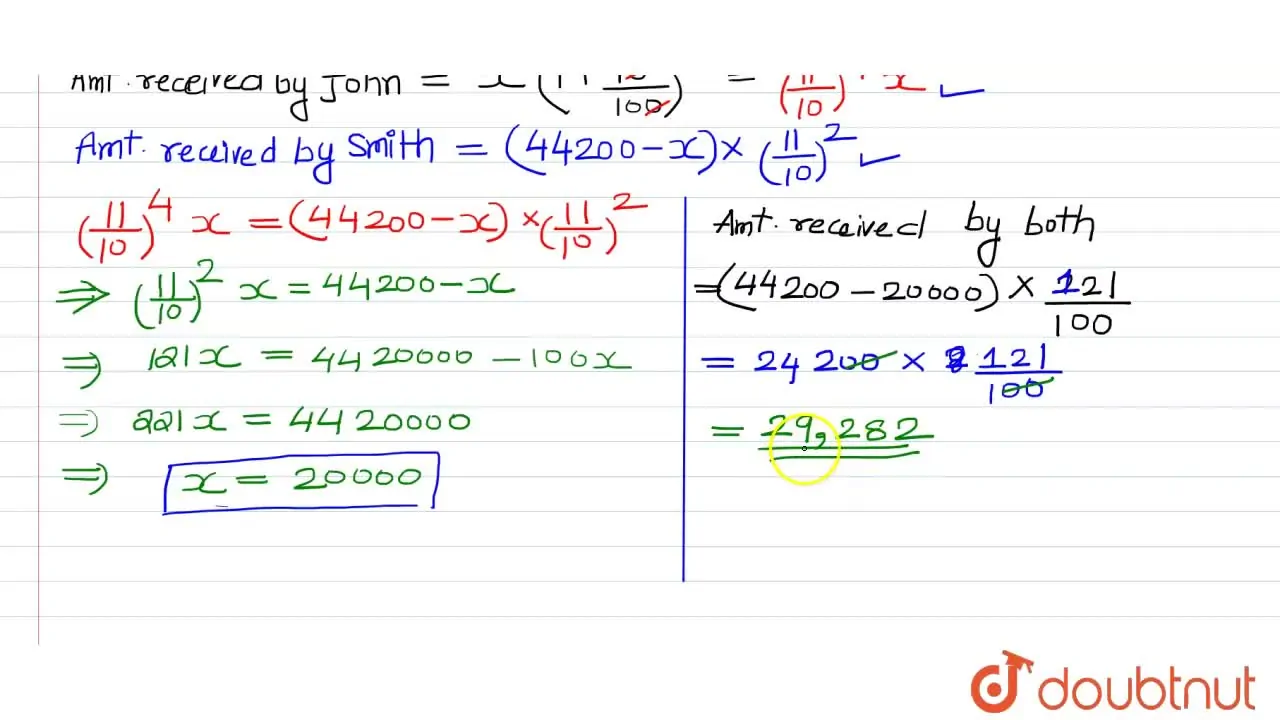 Amt. received by John = x (1+ 10/100) = (11/10) x ✓
Amt. received by Smith = (44200-x)× (11/10)^2 ✓
(11/10)^4 x = (44200-x) × (11/10)^2
⇒ (11/10)^2 x = 44200-x
⇒ 121x = 4420000 - 100x
⇒ 221x = 4420000
⇒ x = 20000
Amt. received by both
= (44200 - 20000) × 121/100
= 24200 × 121/100
= 29,282
doubtnut